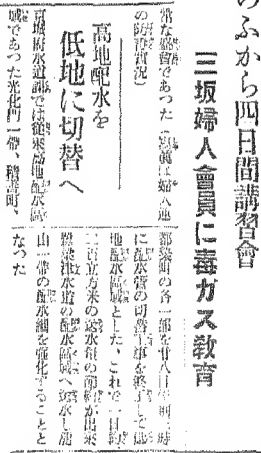 のふから四日間講習會
三坂婦人會員に毒ガス教育
な盛會であつた(寫眞は婦人連
の防毒實況)
高地配水を
低地に切替へ
京城府水道課では從來高地配水區
域であつた光化門一帶、
町の各一部を廿八日午前三時
に配水管の切替工事を終了して低
地配水區域とした、これで一日約
二百立方米の送水量の節約が出來
水道の配水區域へ送水し龍
山一帶の配水網を強化することと
なつた